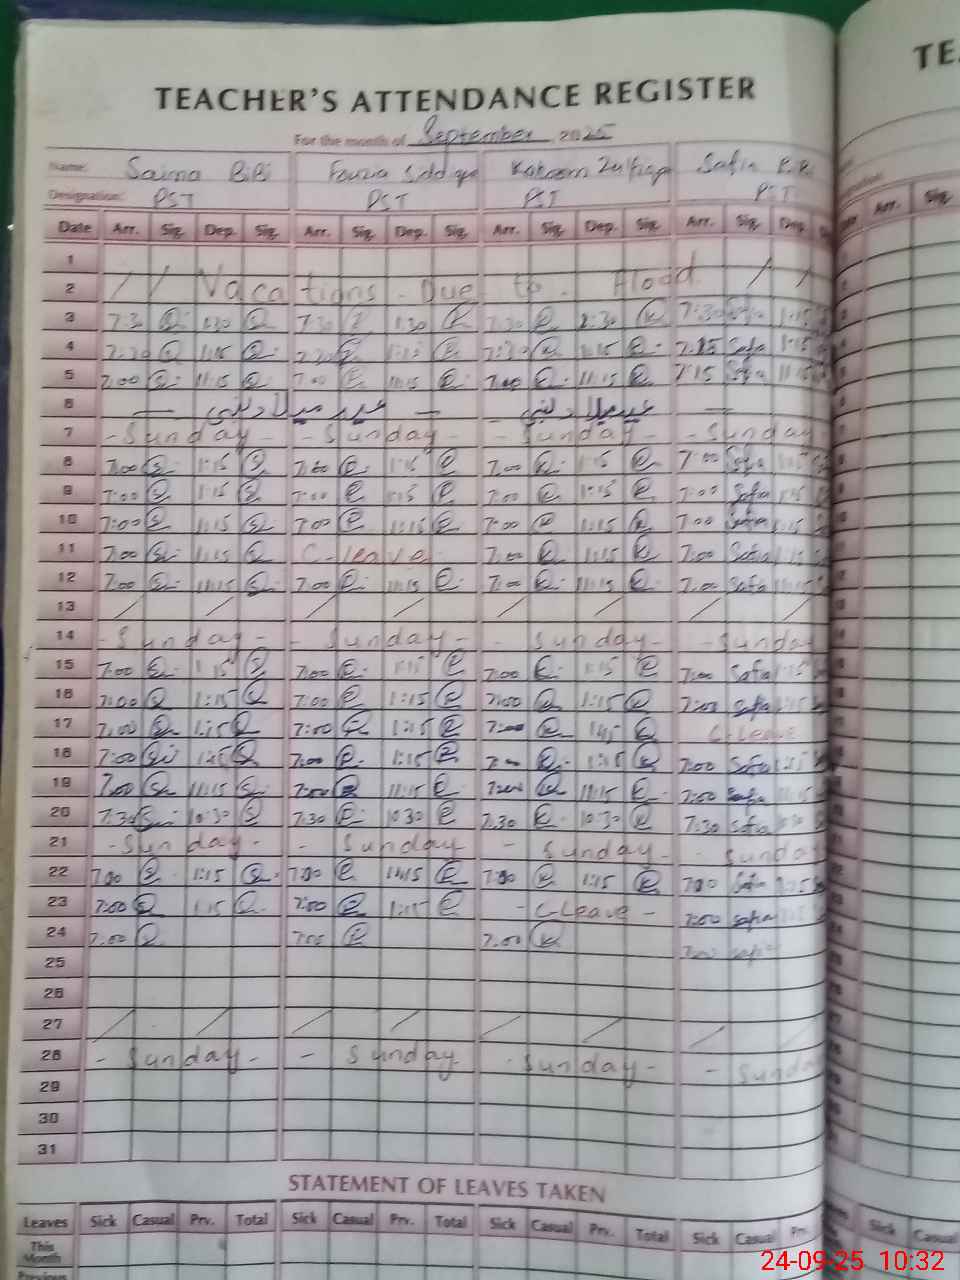 TEACHER'S ATTENDANCE REGISTER
TE
For the month of September, 2025
Name: Saima BiBi Fouzia Kalsoom Zulfiqar Safia B.Bi
Designation: PST PST PST PST
Date Arr. Sig. Dep. Sig. Arr. Sig. Dep. Sig. Arr. Sig. Dep. Sig. Arr. Sig. Dep. Arr. Sig.
1
2 Vacations - Due to Flood
3 7:30 1:30 7:30 1:30 7:30 7:30 Safia 1:15
4 7:30 1:15 7:30 1:15 7:30 1:15 7:15 Safa 1:15
5 7:00 11:15 7:00 11:15 7:00 11:15 7:15 Safa 11:15
6 عید میلاد النبی عید میلاد النبی
7 - Sunday - - Sunday - - Sunday - - Sunday
8 7:00 1:15 7:00 1:15 7:00 1:15 7:00 Safa 1:15
9 7:00 1:15 7:00 1:15 7:00 1:15 7:00 Safia 1:15
10 7:00 1:15 7:00 1:15 7:00 1:15 7:00 Safia 1:15
11 7:00 1:15 C-leave 7:00 1:15 7:00 Safia 1:15
12 7:00 11:15 7:00 11:15 7:00 11:15 7:00 Safa 11:15
13
14 - Sunday - - Sunday - - Sunday - - Sunday
15 7:00 1:15 7:00 1:15 7:00 1:15 7:00 Safia 1:15
16 7:00 1:15 7:00 1:15 7:00 1:15 7:00 Safia 1:15
17 7:00 1:15 7:00 1:15 7:00 C-Leave
18 7:00 7:00 1:15 1:15 7:00 Safa 1:15
19 7:00 11:15 7:00 11:15 7:00 11:15 7:00 11:15
20 7:30 10:30 7:30 10:30 7:30 10:30 7:30 Safia
21 - Sunday - - Sunday - Sunday - - Sunday
22 7:00 1:15 7:00 7:00 1:15 7:00 Safia 1:15
23 7:00 1:15 7:00 1:15 - C-Leave - 7:00 safia
24 7:00 7:00 7:00 7:00
25
26
27
28 - Sunday - - Sunday - Sunday - - Sunda
29
30
31
STATEMENT OF LEAVES TAKEN
Leaves Sick Casual Prv. Total Sick Casual Prv. Total Sick Casual Prv. Total Sick Casual Prv. Sick Casual
This Month
Previous
24-09-25 10:32